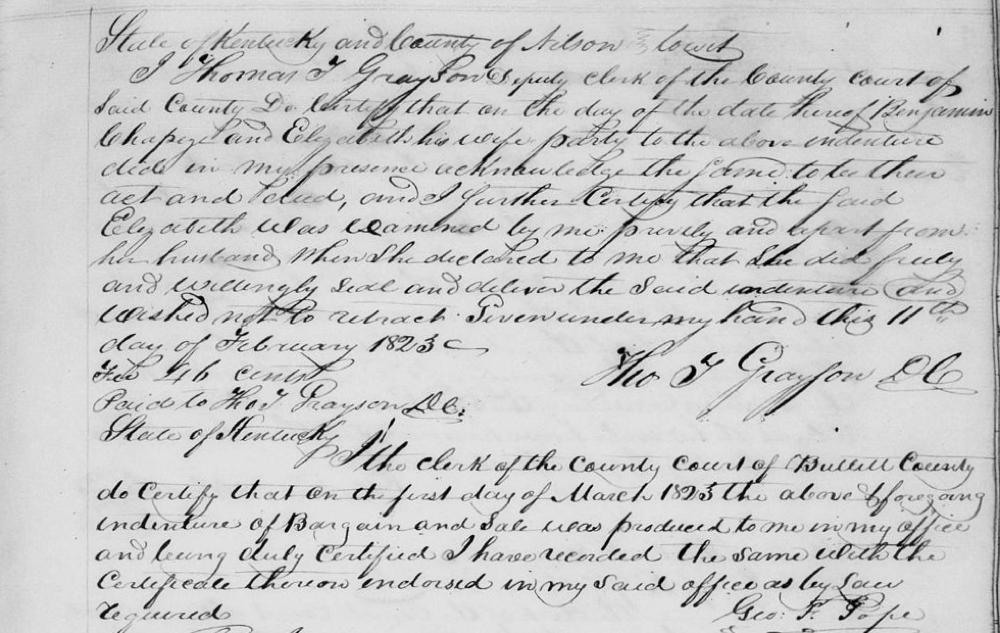 State of Kentucky and County of Nilson towit
I Thomas T Grayson Deputy clerk of the County court of
Said County Do Certify that on the day of the date hereof Benjamin
Chapeze and Elizabeth his wife party to the above indenture
did in my presence acknowledge the Same to be their
act and deed, and I further Certify that the Said
Elizabeth was examined by me privily and apart from
her husband When She declared to me that She did freely
and willingly Seal and deliver the Said indenture and
wished not to retract Given under my hand this 11th
day of February 1823
Fee 46 cents
Tho T Grayson DC
Paid to Tho T Grayson DC.
State of Kentucky
I the clerk of the County Court of Bullitt County
do Certify that on the first day of March 1823 the above & foregoing
indenture of Bargain and Sale was produced to me in my office
and being duly Certified I have recorded the same with the
Certificate thereon indorsed in my Said office as by Law
required
Geo: F. Pope